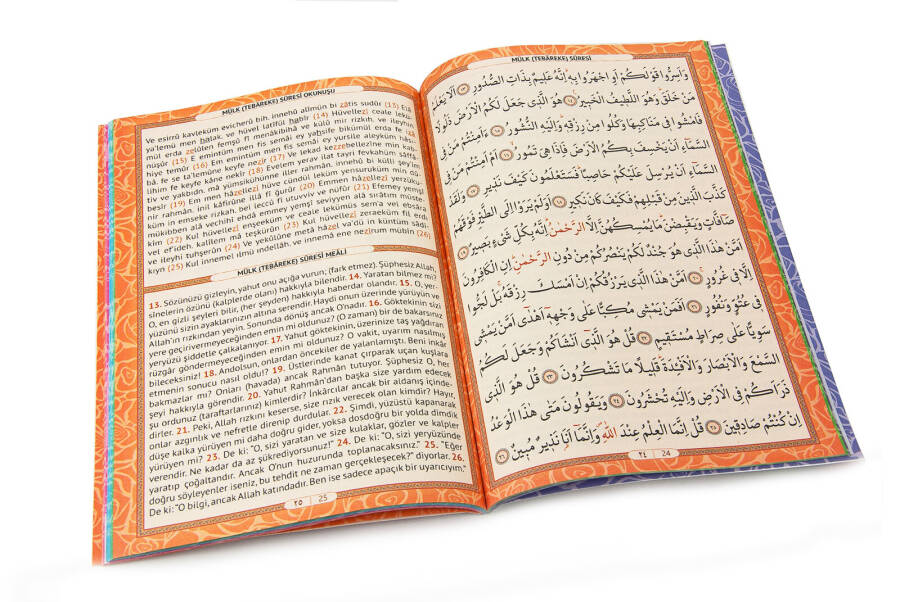 MÜLK (TEBÂREKE) SÛRESİ OKUNUŞU
Ve esirrû kavleküm evicherû bih, innehû alîmün bi zâtis sudûr (13) Elâ
ya'lemü men halak ve hüvel latîfül habîr (14) Hüvellezî ceale lekü-
mül erda zelûlen femşû fî menâkibihâ ve külû mir rizkıh, ve ileyhin
nüşûr (15) E emintüm men fis semâi ey yahsife bikümül erda fe izâ
hiye temûr (16) Em emintüm men fis semâi ey yursile aleyküm hâsı-
bâ, fe se ta'lemûne keyfe nezîr (17) Ve lekad kezzebellezîne min kab-
lihim fe keyfe kâne nekîr (18) Evelem yerav ilat tayri fevkahüm sâffâ-
tiv ve yakbıdn, mâ yümsikühünne iller rahmân, innehû bi külli şey'im
besîr (19) Em men hâzellezî hüve cündül leküm yensuruküm min dû-
nir rahmân, inil kâfirûne illâ fî ğurûr (20) Emmen hâzellezî yerzüku-
küm in emseke rizkah, bel leccû fî utuvviv ve nüfûr (21) Efemey yemşî
mükibben alâ vechihî ehdâ emmey yemşî seviyyen alâ sırâtım müste-
kîm (22) Kul hüvellezî enşeeküm ve ceale lekümüs sem'a vel ebsâra
vel ef'ideh, kalîlem mâ teşkürûn (23) Kul hüvellezî zeraeküm fil erdı
ve ileyhi tuhşerûn (24) Ve yekûlûne metâ hâzel va'dü in küntüm sâdi-
kıyn (25) Kul innemel ılmü ındellâh, ve innemâ ene nezîrum mübîn (26)
MÜLK (TEBÂREKE) SÛRESİ MEÂLİ
13. Sözünüzü gizleyin, yahut onu açığa vurun; (fark etmez). Şüphesiz Allah,
sînelerin özünü (kalplerde olanı) hakkıyla bilendir. 14. Yaratan bilmez mi?
O, en gizli şeyleri bilir, (her şeyden) hakkıyla haberdar olandır. 15. O, yer-
yüzünü sizin ayaklarınızın altına serendir. Haydi onun üzerinde yürüyün ve
Allah'ın rızkından yeyin. Sonunda dönüş ancak O'nadır. 16. Göktekinin sizi
yere geçirivermeyeceğinden emin mi oldunuz? (O zaman) bir de bakarsınız
yeryüzü şiddetle çalkalanıyor. 17. Yahut göktekinin, üzerinize taş yağdıran
rüzgâr göndermeyeceğinden emin mi oldunuz? O vakit, uyarım nasılmış
bileceksiniz! 18. Andolsun, onlardan öncekiler de yalanlamıştı. Beni inkâr
etmenin sonucu nasıl oldu? 19. Üstlerinde kanat çırparak uçan kuşlara
bakmazlar mı? Onları (havada) ancak Rahmân tutuyor. Şüphesiz O, her
şeyi hakkıyla görendir. 20. Yahut Rahmân'dan başka size yardım edecek
şu ordunuz (taraftarlarınız) kimlerdir? İnkârcılar ancak bir aldanış içinde-
dirler. 21. Peki, Allah rızkını keserse, size rızık verecek olan kimdir? Hayır,
onlar azgınlık ve nefretle direnip durdular. 22. Şimdi, yüzüstü kapanarak
düşe kalka yürüyen mi daha doğru gider, yoksa dosdoğru bir yolda dimdik
yürüyen mi? 23. De ki: "O, sizi yaratan ve size kulaklar, gözler ve kalpler
verendir. Ne kadar da az şükrediyorsunuz!" 24. De ki: "O, sizi yeryüzünde
yaratıp çoğaltandır. Ancak O'nun huzurunda toplanacaksınız." 25. "Eğer
doğru söyleyenler iseniz, bu tehdit ne zaman gerçekleşecek?" diyorlar. 26.
De ki: "O bilgi, ancak Allah katındadır. Ben ise sadece apaçık bir uyarıcıyım."
٢٥ 25
MÜLK (TEBÂREKE) SÛRESİ
وَاَسِرُّوا قَوْلَكُمْ اَوِ اجْهَرُوا بِهِ اِنَّهُ عَلِيمٌ بِذَاتِ الصُّدُورِ ﴿١٣﴾ اَلَا يَعْلَمُ
مَنْ خَلَقَ وَهُوَ اللَّطِيفُ الْخَبِيرُ ﴿١٤﴾ هُوَ الَّذِى جَعَلَ لَكُمُ الْاَرْضَ ذَلُولًا
فَامْشُوا فِى مَنَاكِبِهَا وَكُلُوا مِنْ رِزْقِهِ وَاِلَيْهِ النُّشُورُ ﴿١٥﴾ ءَاَمِنْتُمْ مَنْ فِى
السَّمَاءِ اَنْ يَخْسِفَ بِكُمُ الْاَرْضَ فَاِذَا هِىَ تَمُورُ ﴿١٦﴾ اَمْ اَمِنْتُمْ مَنْ فِى
السَّمَاءِ اَنْ يُرْسِلَ عَلَيْكُمْ حَاصِبًا فَسَتَعْلَمُونَ كَيْفَ نَذِيرِ ﴿١٧﴾ وَلَقَدْ
كَذَّبَ الَّذِينَ مِنْ قَبْلِهِمْ فَكَيْفَ كَانَ نَكِيرِ ﴿١٨﴾ اَوَلَمْ يَرَوْا اِلَى الطَّيْرِ فَوْقَهُمْ
صَافَّاتٍ وَيَقْبِضْنَ مَا يُمْسِكُهُنَّ اِلَّا الرَّحْمٰنُ اِنَّهُ بِكُلِّ شَىْءٍ بَصِيرٌ ﴿١٩﴾
اَمَّنْ هٰذَا الَّذِى هُوَ جُنْدٌ لَكُمْ يَنْصُرُكُمْ مِنْ دُونِ الرَّحْمٰنِ اِنِ الْكَافِرُونَ
اِلَّا فِى غُرُورٍ ﴿٢٠﴾ اَمَّنْ هٰذَا الَّذِى يَرْزُقُكُمْ اِنْ اَمْسَكَ رِزْقَهُ بَلْ لَجُّوا
فِى عُتُوٍّ وَنُفُورٍ ﴿٢١﴾ اَفَمَنْ يَمْشِى مُكِبًّا عَلٰى وَجْهِهِ اَهْدٰى اَمَّنْ يَمْشِى
سَوِيًّا عَلٰى صِرَاطٍ مُسْتَقِيمٍ ﴿٢٢﴾ قُلْ هُوَ الَّذِى اَنْشَاَكُمْ وَجَعَلَ لَكُمُ
السَّمْعَ وَالْاَبْصَارَ وَالْاَفْئِدَةَ قَلِيلًا مَا تَشْكُرُونَ ﴿٢٣﴾ قُلْ هُوَ الَّذِى
ذَرَاَكُمْ فِى الْاَرْضِ وَاِلَيْهِ تُحْشَرُونَ ﴿٢٤﴾ وَيَقُولُونَ مَتٰى هٰذَا الْوَعْدُ
اِنْ كُنْتُمْ صَادِقِينَ ﴿٢٥﴾ قُلْ اِنَّمَا الْعِلْمُ عِنْدَ اللّٰهِ وَاِنَّمَا اَنَا نَذِيرٌ مُبِينٌ ﴿٢٦﴾
٢٤ 24